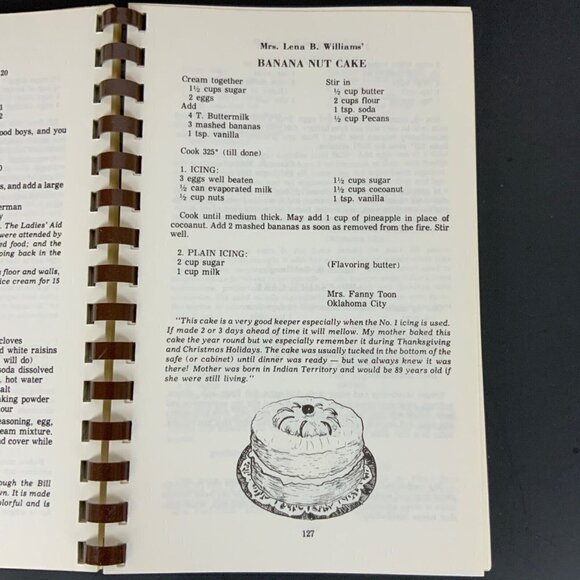 20
1
2
ood boys, and you
0
s, and add a large
erman
y
. The Ladies' Aid
were attended by
ed food; and the
ping back in the
s floor and walls,
ice cream for 15
cloves
d white raisins
will do)
soda dissolved
. hot water
alt
aking powder
our
easoning, egg,
eam mixture.
nd cover while
rough the Bill
wn. It is made
olorful and is
Mrs. Lena B. Williams'
BANANA NUT CAKE
Cream together
1½ cups sugar
2 eggs
Add
4 T. Buttermilk
3 mashed bananas
1 tsp. vanilla
Stir in
½ cup butter
2 cups flour
1 tsp. soda
½ cup Pecans
Cook 325° (till done)
1. ICING:
3 eggs well beaten
½ can evaporated milk
½ cup nuts
1½ cups sugar
1½ cups cocoanut
1 tsp. vanilla
Cook until medium thick. May add 1 cup of pineapple in place of
cocoanut. Add 2 mashed bananas as soon as removed from the fire. Stir
well.
2. PLAIN ICING:
2 cup sugar
1 cup milk
(Flavoring butter)
Mrs. Fanny Toon
Oklahoma City
"This cake is a very good keeper especially when the No. 1 icing is used.
If made 2 or 3 days ahead of time it will mellow. My mother baked this
cake the year round but we especially remember it during Thanksgiving
and Christmas Holidays. The cake was usually tucked in the bottom of the
safe (or cabinet) until dinner was ready — but we always knew it was
there! Mother was born in Indian Territory and would be 89 years old if
she were still living."
127